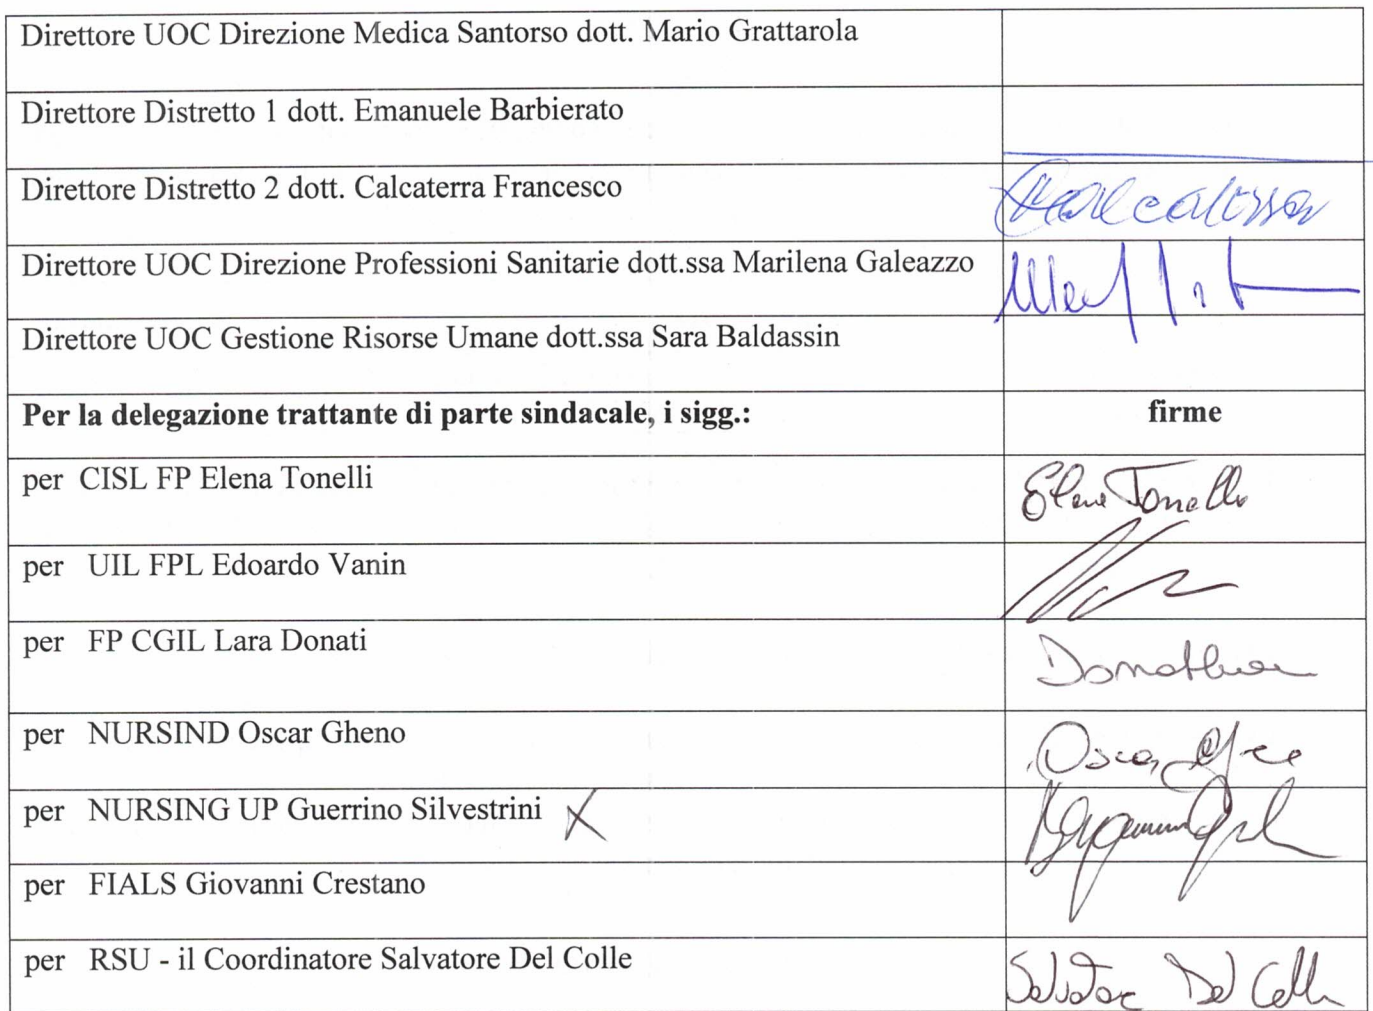 Direttore UOC Direzione Medica Santorso dott. Mario Grattarola
Direttore Distretto 1 dott. Emanuele Barbierato
Direttore Distretto 2 dott. Calcaterra Francesco
Direttore UOC Direzione Professioni Sanitarie dott.ssa Marilena Galeazzo
Direttore UOC Gestione Risorse Umane dott.ssa Sara Baldassin
Per la delegazione trattante di parte sindacale, i sigg.: firme
per CISL FP Elena Tonelli Elena Tonelli
per UIL FPL Edoardo Vanin
per FP CGIL Lara Donati
per NURSIND Oscar Gheno Oscar
per NURSING UP Guerrino Silvestrini X
per FIALS Giovanni Crestano
per RSU - il Coordinatore Salvatore Del Colle Salvatore Del Colle